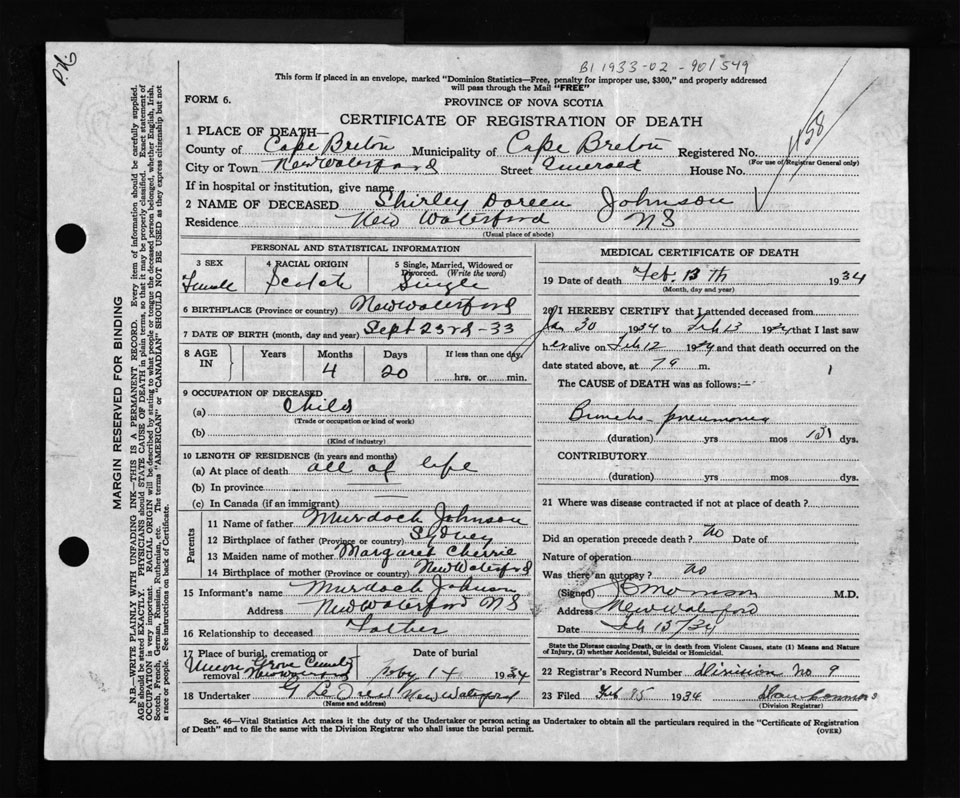 B1 1933-02-901549
This form if placed in an envelope, marked "Dominion Statistics—Free, penalty for improper use, $300," and properly addressed
will pass through the Mail "FREE"
FORM 6.
PROVINCE OF NOVA SCOTIA
CERTIFICATE OF REGISTRATION OF DEATH
1 PLACE OF DEATH—
County of Cape Breton Municipality of Cape Breton Registered No.
(For use of Registrar General only)
City or Town New Waterford Street Emerald House No.
If in hospital or institution, give name
2 NAME OF DECEASED Shirley Doreen Johnson
Residence New Waterford NS
(Usual place of abode)
PERSONAL AND STATISTICAL INFORMATION
3 SEX 4 RACIAL ORIGIN 5 Single, Married, Widowed or Divorced. (Write the word)
Female Scotch Single
6 BIRTHPLACE (Province or country) New Waterford
7 DATE OF BIRTH (month, day and year) Sept 23rd-33
8 AGE IN Years Months Days If less than one day,
4 20 hrs. or min.
9 OCCUPATION OF DECEASED
(a) Child
(Trade or occupation or kind of work)
(b)
(Kind of industry)
10 LENGTH OF RESIDENCE (in years and months)
(a) At place of death all of life
(b) In province
(c) In Canada (if an immigrant)
Parents
11 Name of father Murdoch Johnson
12 Birthplace of father (Province or country) Sydney
13 Maiden name of mother Margaret Cherrie
14 Birthplace of mother (Province or country) New Waterford
15 Informant's name Murdoch Johnson
Address New Waterford NS
16 Relationship to deceased Father
17 Place of burial, cremation or removal Date of burial
Grove 14 1934
18 Undertaker New Waterford
(Name and address)
MEDICAL CERTIFICATE OF DEATH
19 Date of death Feb. 13th 1934
(Month, day and year)
20 I HEREBY CERTIFY that I attended deceased from
Jan 30 1934 to Feb 13 1934 that I last saw
her alive on Feb 12 1934 and that death occurred on the
date stated above, at 7 a m.
The CAUSE of DEATH was as follows:—
Broncho-pneumonia
(duration) yrs mos dys.
CONTRIBUTORY
(duration) yrs mos dys.
21 Where was disease contracted if not at place of death?
Did an operation precede death? no Date of
Nature of operation
Was there an autopsy? no
(Signed) M.D.
Address New Waterford
Date Feb 13/34
State the Disease causing Death, or in death from Violent Causes, state (1) Means and Nature of Injury, (2) whether Accidental, Suicidal or Homicidal.
22 Registrar's Record Number Division No 9
23 Filed 1934
(Division Registrar)
Sec. 46—Vital Statistics Act makes it the duty of the Undertaker or person acting as Undertaker to obtain all the particulars required in the "Certificate of Registration
of Death" and to file the same with the Division Registrar who shall issue the burial permit.
(OVER)
MARGIN RESERVED FOR BINDING
N.B.—WRITE PLAINLY WITH UNFADING INK—THIS IS A PERMANENT RECORD. Every item of information should be carefully supplied.
AGE should be stated EXACTLY. PHYSICIANS should STATE CAUSE OF DEATH in plain terms, so that it may be properly classified. Exact statement of
OCCUPATION is very important. RACIAL ORIGIN will be described by stating to what people or tongue the deceased person belonged, whether English, Irish,
Scotch, French, German, Russian, Ruthenian, etc. The terms "AMERICAN" or "CANADIAN" SHOULD NOT BE USED as they express citizenship but not
a race or people. See instructions on back of Certificate.